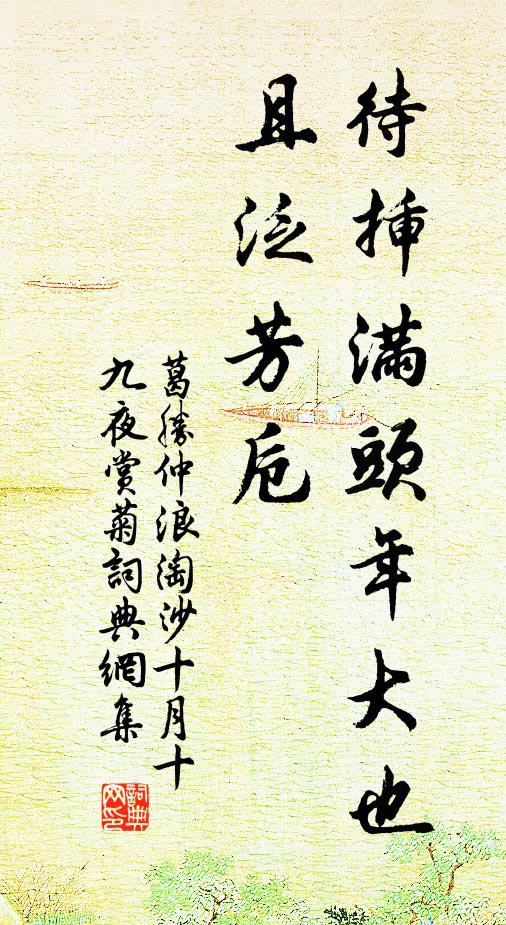 待插滿頭年大也
且泛芳卮
葛勝仲浪淘沙十月十
九夜賞菊詞典網集
詞典
网印